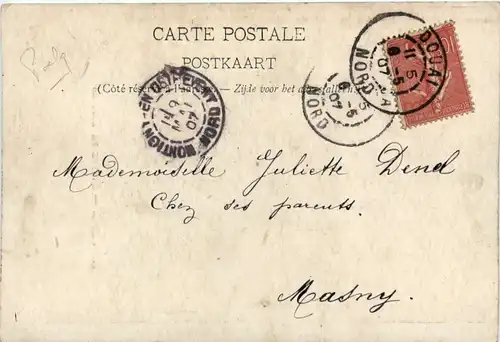 CARTE POSTALE
POSTKAART
(Côté réservé à l'adresse). — Zijde voor het adres
DOUAI
11 5
6 -5
07
NORD
5
6 5
07
NORD
MONTIGNY-EN-OSTREVENT
NORD
07
10
Mademoiselle Juliette Denel
Chez ses parents.
Masny.